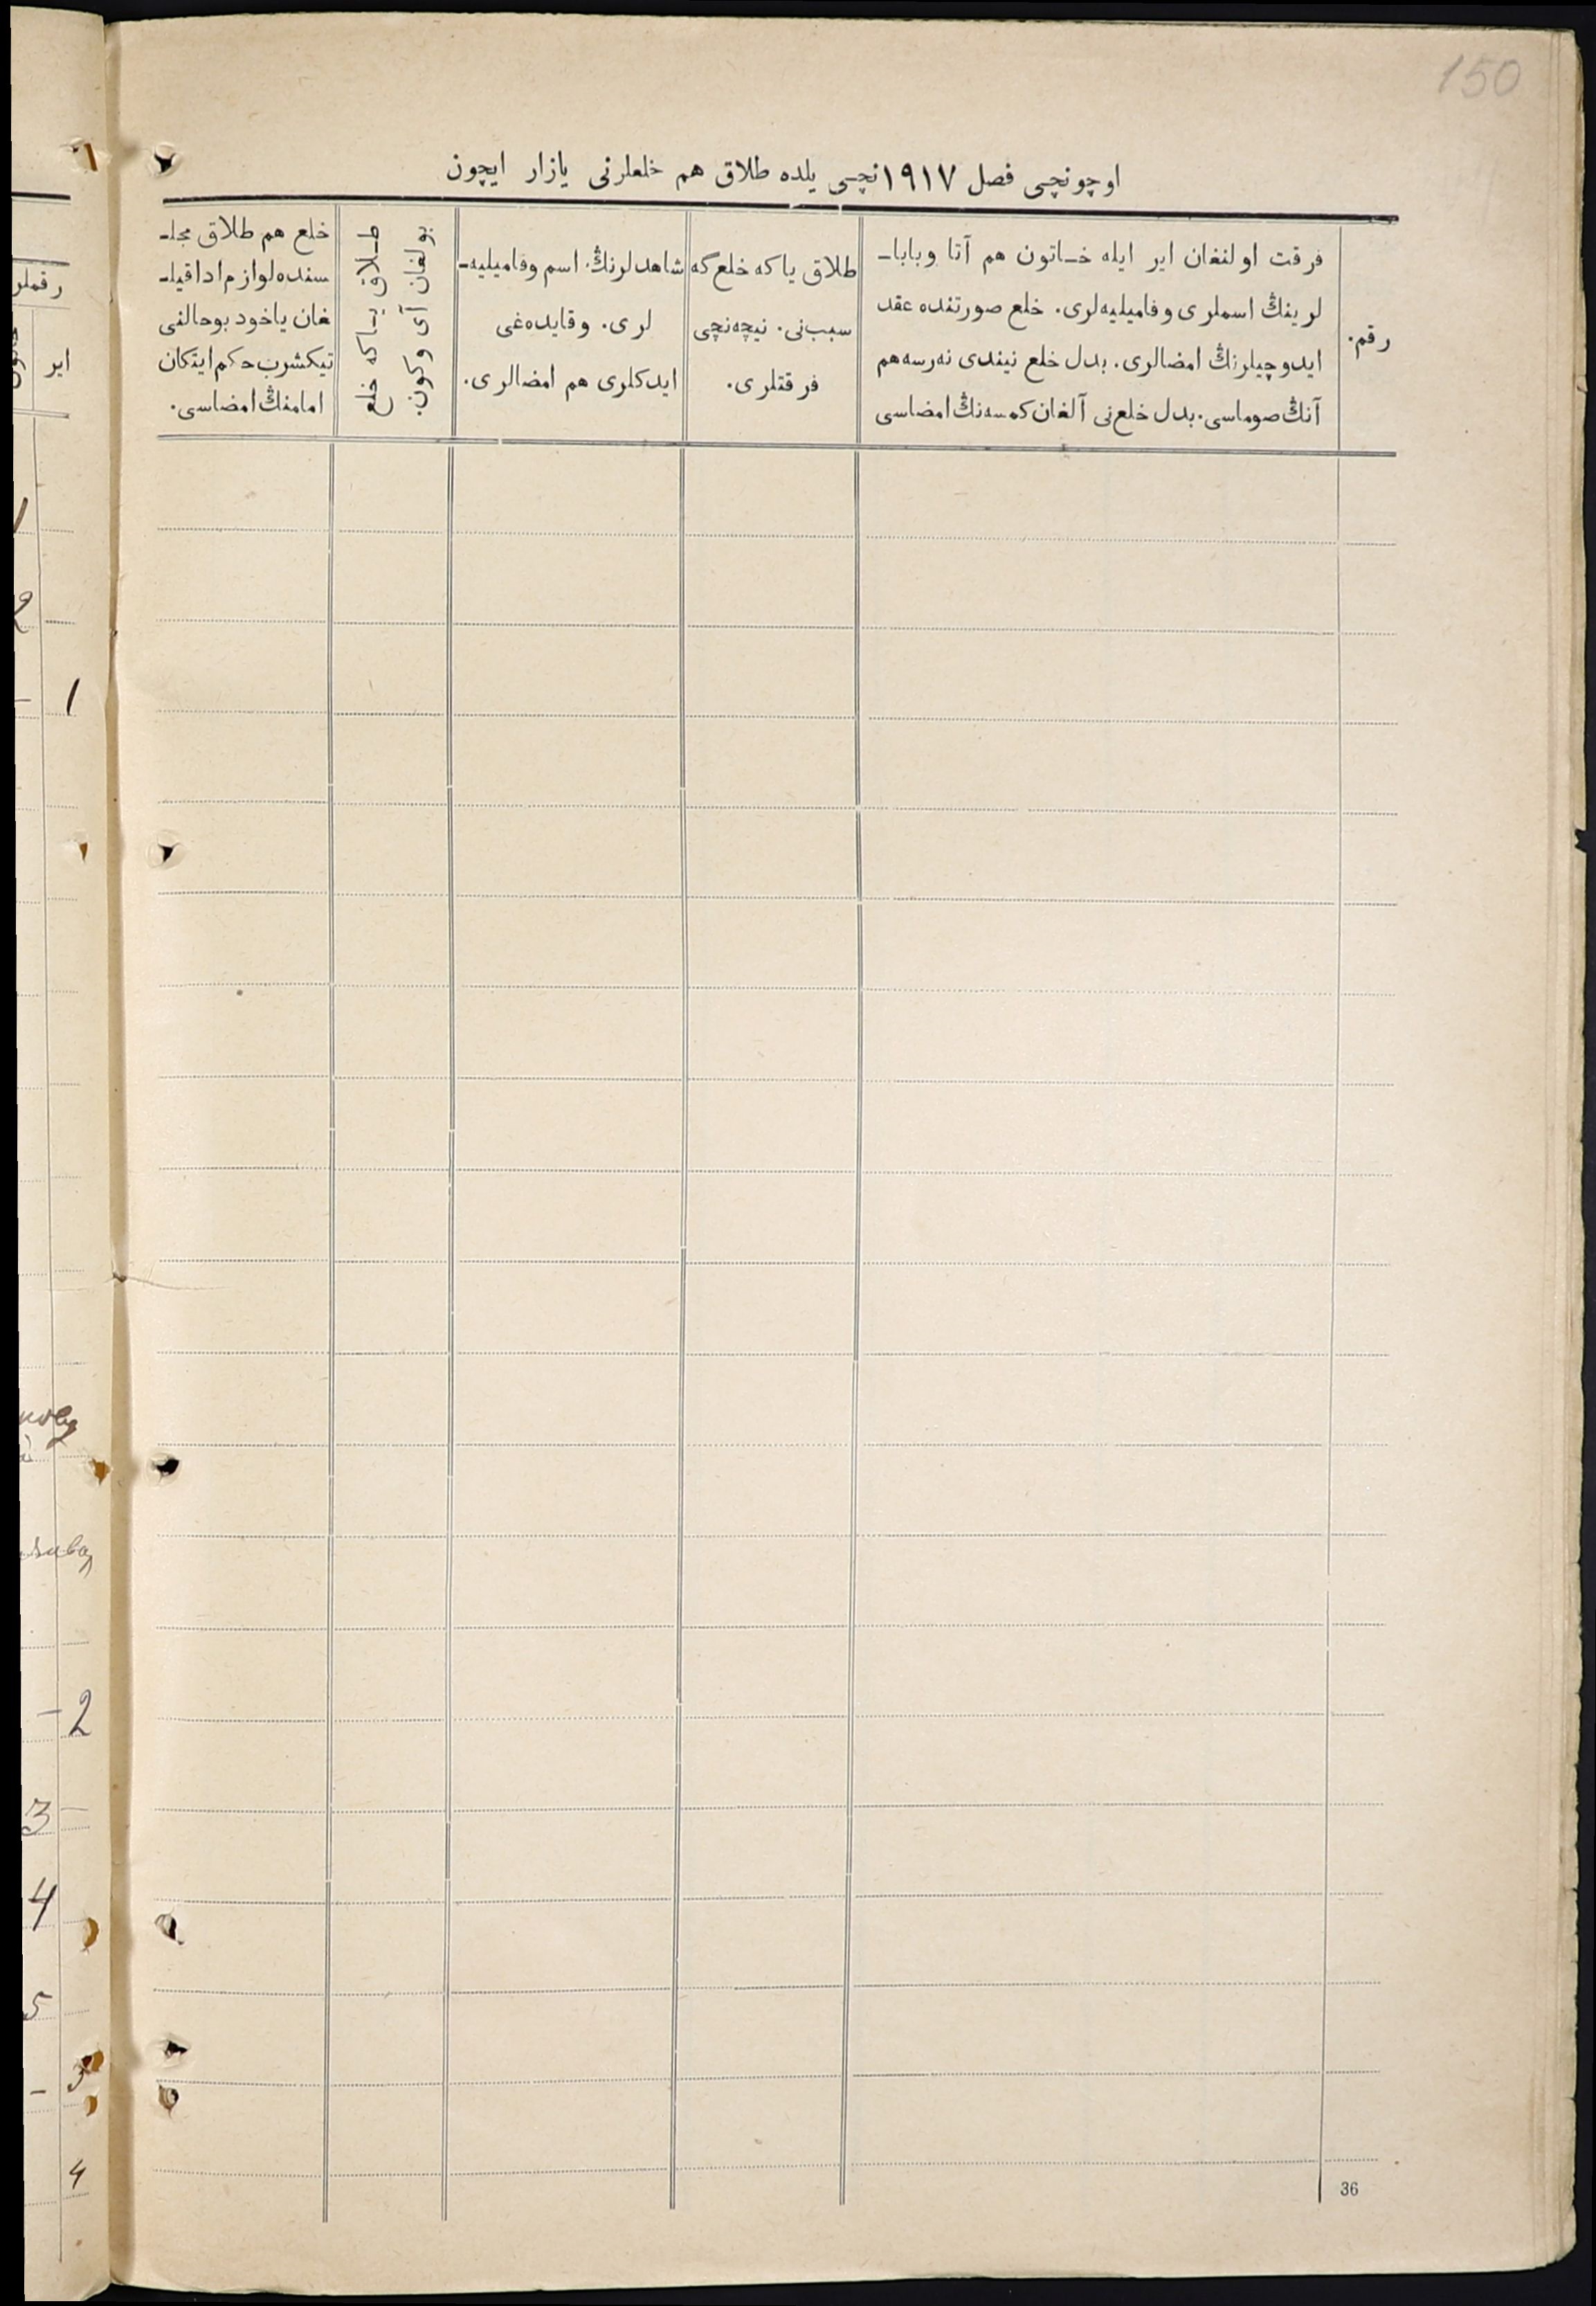 150
اوچونچی فصل ١٩١٧نچی یلده طلاق هم خلعلرنی یازار ایچون
رقم.
فرقت اولنغان ایر ایله خـاتون هم آتا وباباـ
لرینڭ اسملری وفامیلیه‌لری. خلع صورتنده عقد
ایدوچیلرنڭ امضالری. بدل خلع نیندی نه‌رسه‌هم
آنڭ صوماسی. بدل خلع‌نی آلغان کمسه‌نڭ امضاسی
طلاق یاکه خلع‌گه
سبب‌نی. نیچه‌نچی
فرقتلری.
شاهدلرنڭ اسم وفامیلیه‌ـ
لری. وقایده‌غی
ایدکلری هم امضالری.
طـلاق یـاکه خلع
بولغان آی وکون.
خلع هم طلاق مجلـ
سنده‌لوازم‌اداقیلـ
غان یاخود بوحالنی
تیکشرب‌حکم‌ایتکان
امامنڭ‌امضاسی.
36
رقملر
ایر
1
2
1
2
3
4
5
3
4